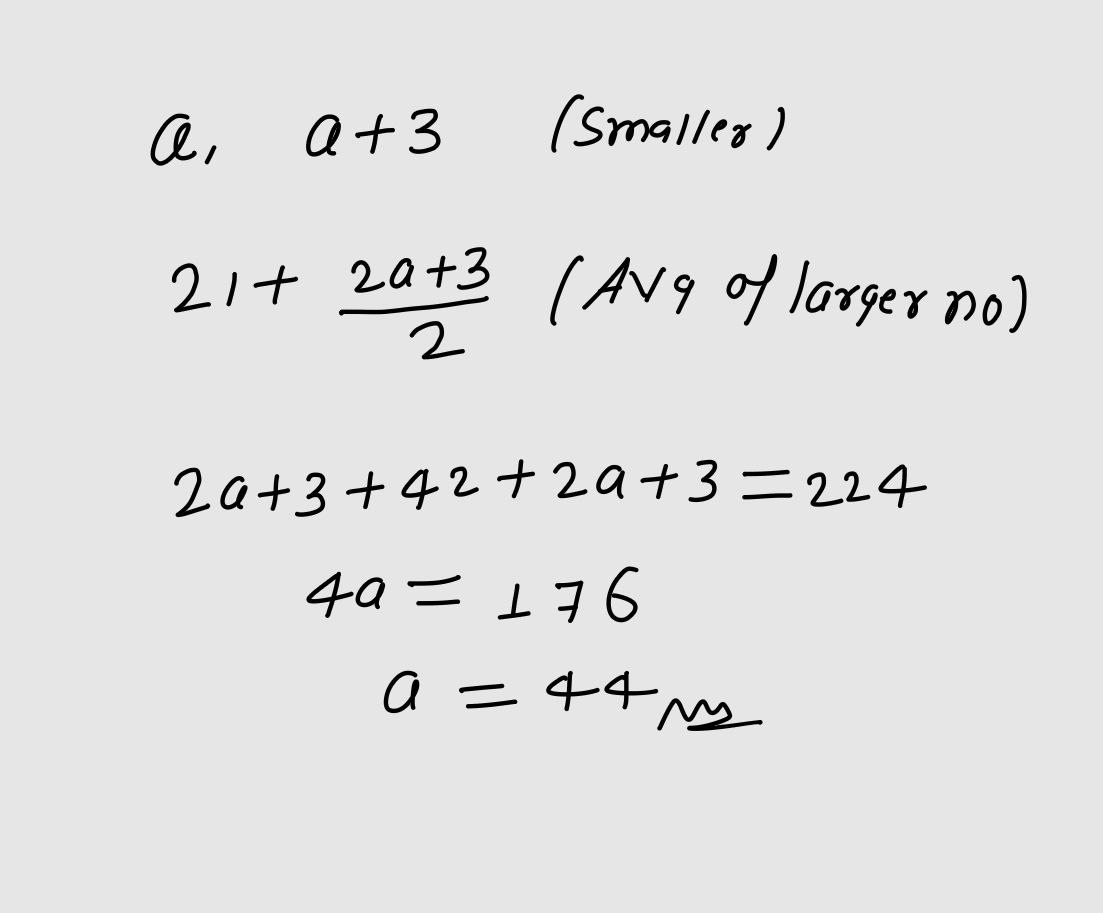 a, a+3 (Smaller)
21 + (2a+3)/2 (Avg of larger no)
2a+3+42+2a+3=224
4a = 176
a = 44